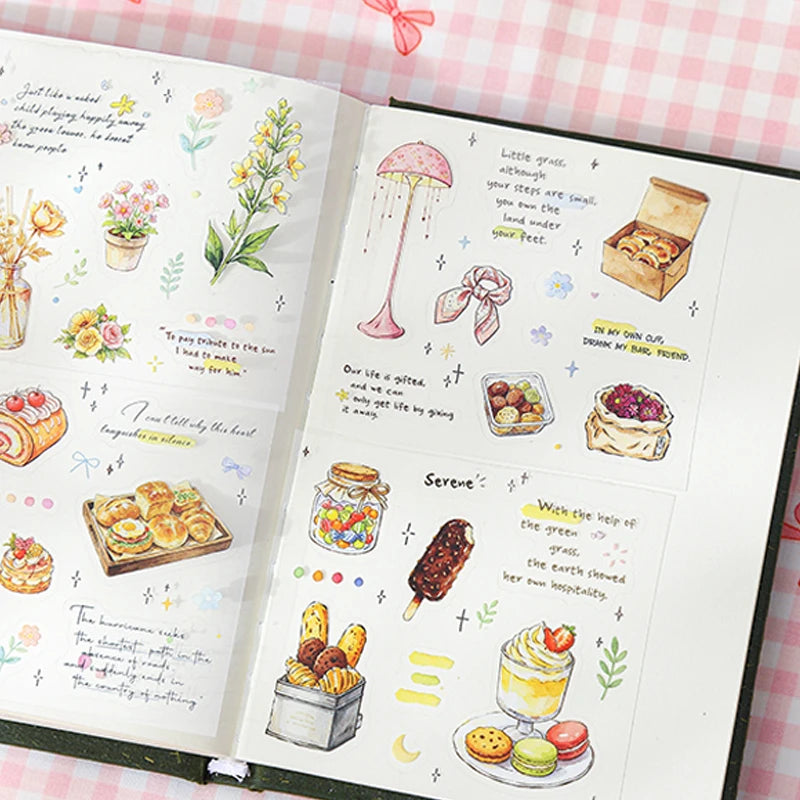 Just like a naked
child playing happily among
the green leaves, he doesn't
know people
"To pay tribute to the sun
I had to make
way for him."
I can't tell why this heart
languishes in silence.
The hurricane seeks
the shortest path in the
absence of roads,
and suddenly ends in
the country of nothing"
Little grass,
although
your steps are small,
you own the
land under
your feet.
IN MY OWN CUP,
DRANK MY BAR, FRIEND.
Our life is gifted,
and we can
only get life by giving
it away.
Serene
With the help of
the green
grass,
the earth showed
her own hospitality.